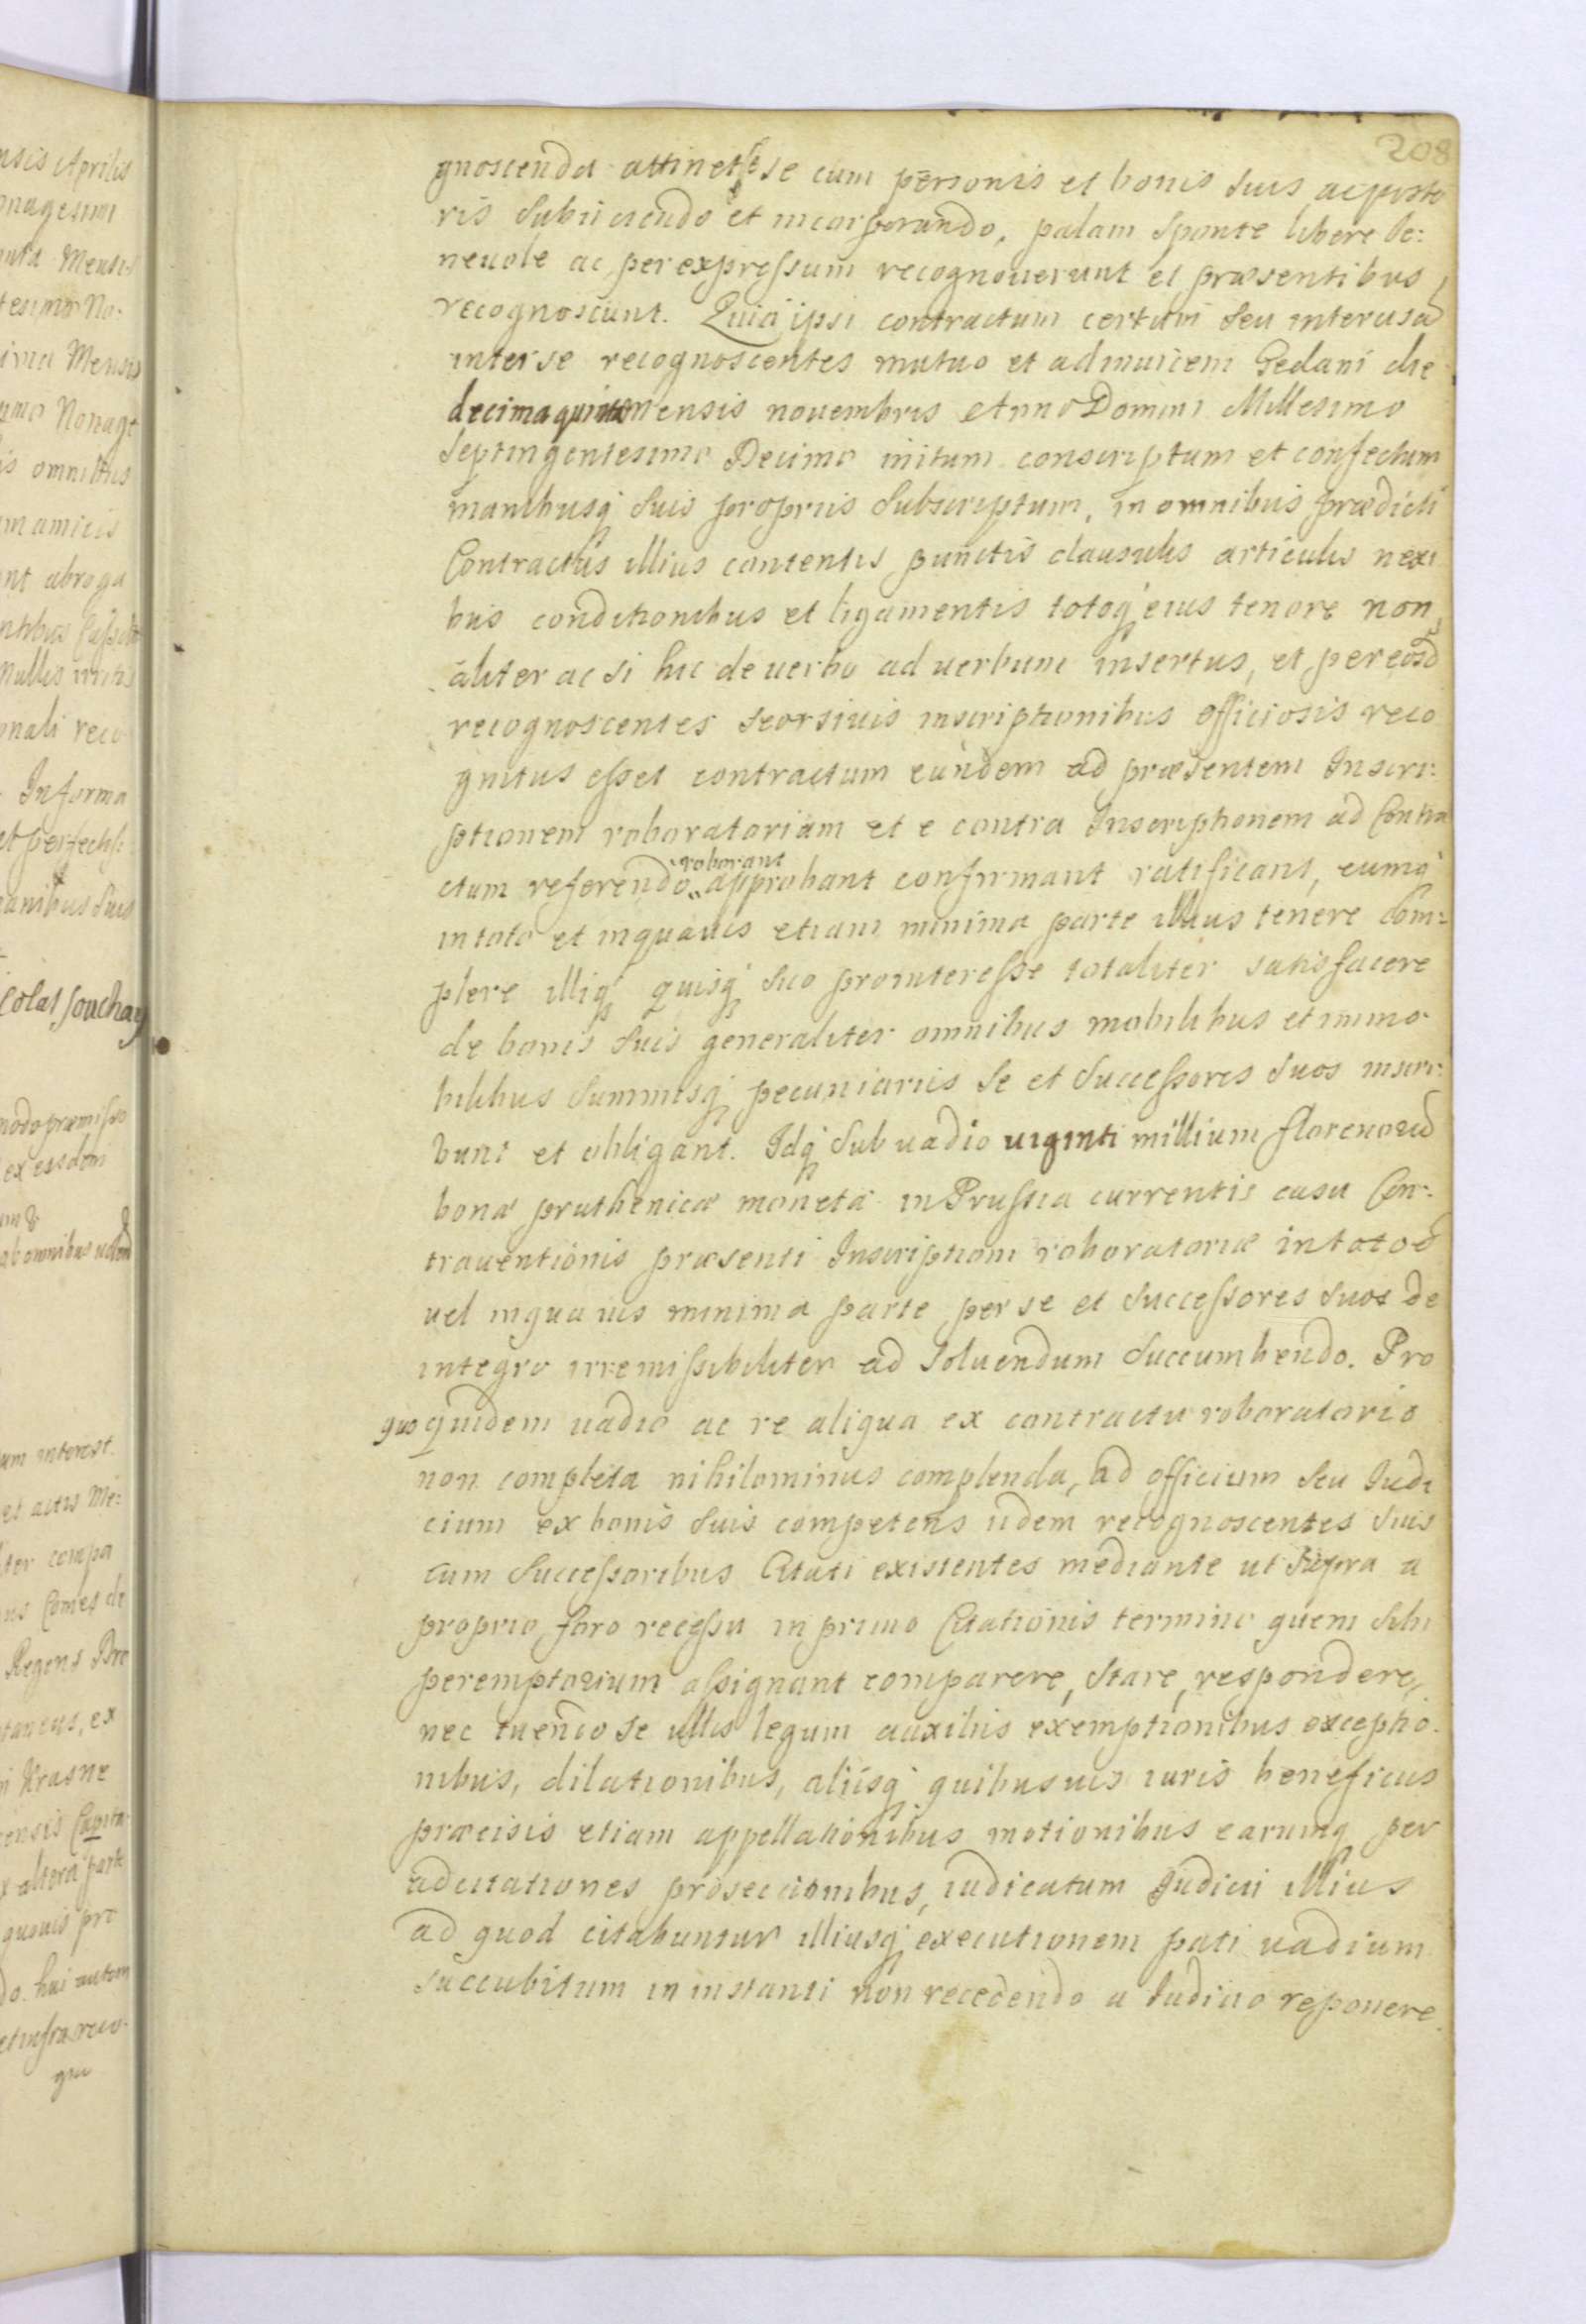 208
gnoscenda attinet se cum personis et bonis suis ac poste
ris subiiciendo et incorporando, palam sponte libere be:
neuole ac per expressum recognouerunt et præsentibus
recognoscunt. Quia ipsi contractum certum seu interusa
inter se recognoscentes mutuo et adinuicem Gedani die
decima quinta mensis nouembris Anno Domini Millesimo
Septingentesimo Decimo initum conscriptum et confectum
manibusq suis propriis subscriptum, in omnibus prædicti
Contractus illius contentis punctis clausulis articulis nexi
bus conditionibus et ligamentis totoq eius tenore non
aliter ac si hic de uerbo ad uerbum insertus, et per eosd
recognoscentes seorsiuis inscriptionibus officiosis reco
gnitus esset contractum eundem ad præsentem Inscri:
ptionem roboratoriam et e contra Inscriptionem ad Contra
roborant
ctum referendo approbant confirmant ratificant, eumq
in toto et in quauis etiam minima parte illius tenere com:
plere illiq quisq suo pro interesse totaliter satisfacere
de bonis suis generaliter omnibus mobilibus et immo
bilibus summisq pecuniariis se et Successores suos inscri:
bunt et obligant. Idq sub uadio uiginti millium florenorum
bonæ pruthenicæ moneta in Prussia currentis casu Con:
trauentionis præsenti Inscriptioni roboratoriæ in toto
uel in qua uis minima parte per se et Successores suos de
integro irremissibiliter ad soluendum succumbendo. Pro
quo quidem uadio ac re aliqua ex contractu roboratorio
non completa nihilominus complenda, ad officium seu Iudi
cium ex bonis suis competens iidem recognoscentes suis
cum Successoribus Citati existentes mediante ut supra a
proprio foro recessu in primo Citationis termino quem sibi
peremptorium assignant comparere, stare, respondere,
nec tuendo se ullis legum auxiliis exemptionibus exceptio
nibus, dilationibus, aliisq quibusuis iuris beneficiis
præcisis etiam appellationibus motionibus earumq per
adcitationes prosecutionibus, iudicatum Iudicii illius
ad quod citabuntur illiusq executionem pati uadium
succubitum in instanti non recedendo a Iudicio reponere